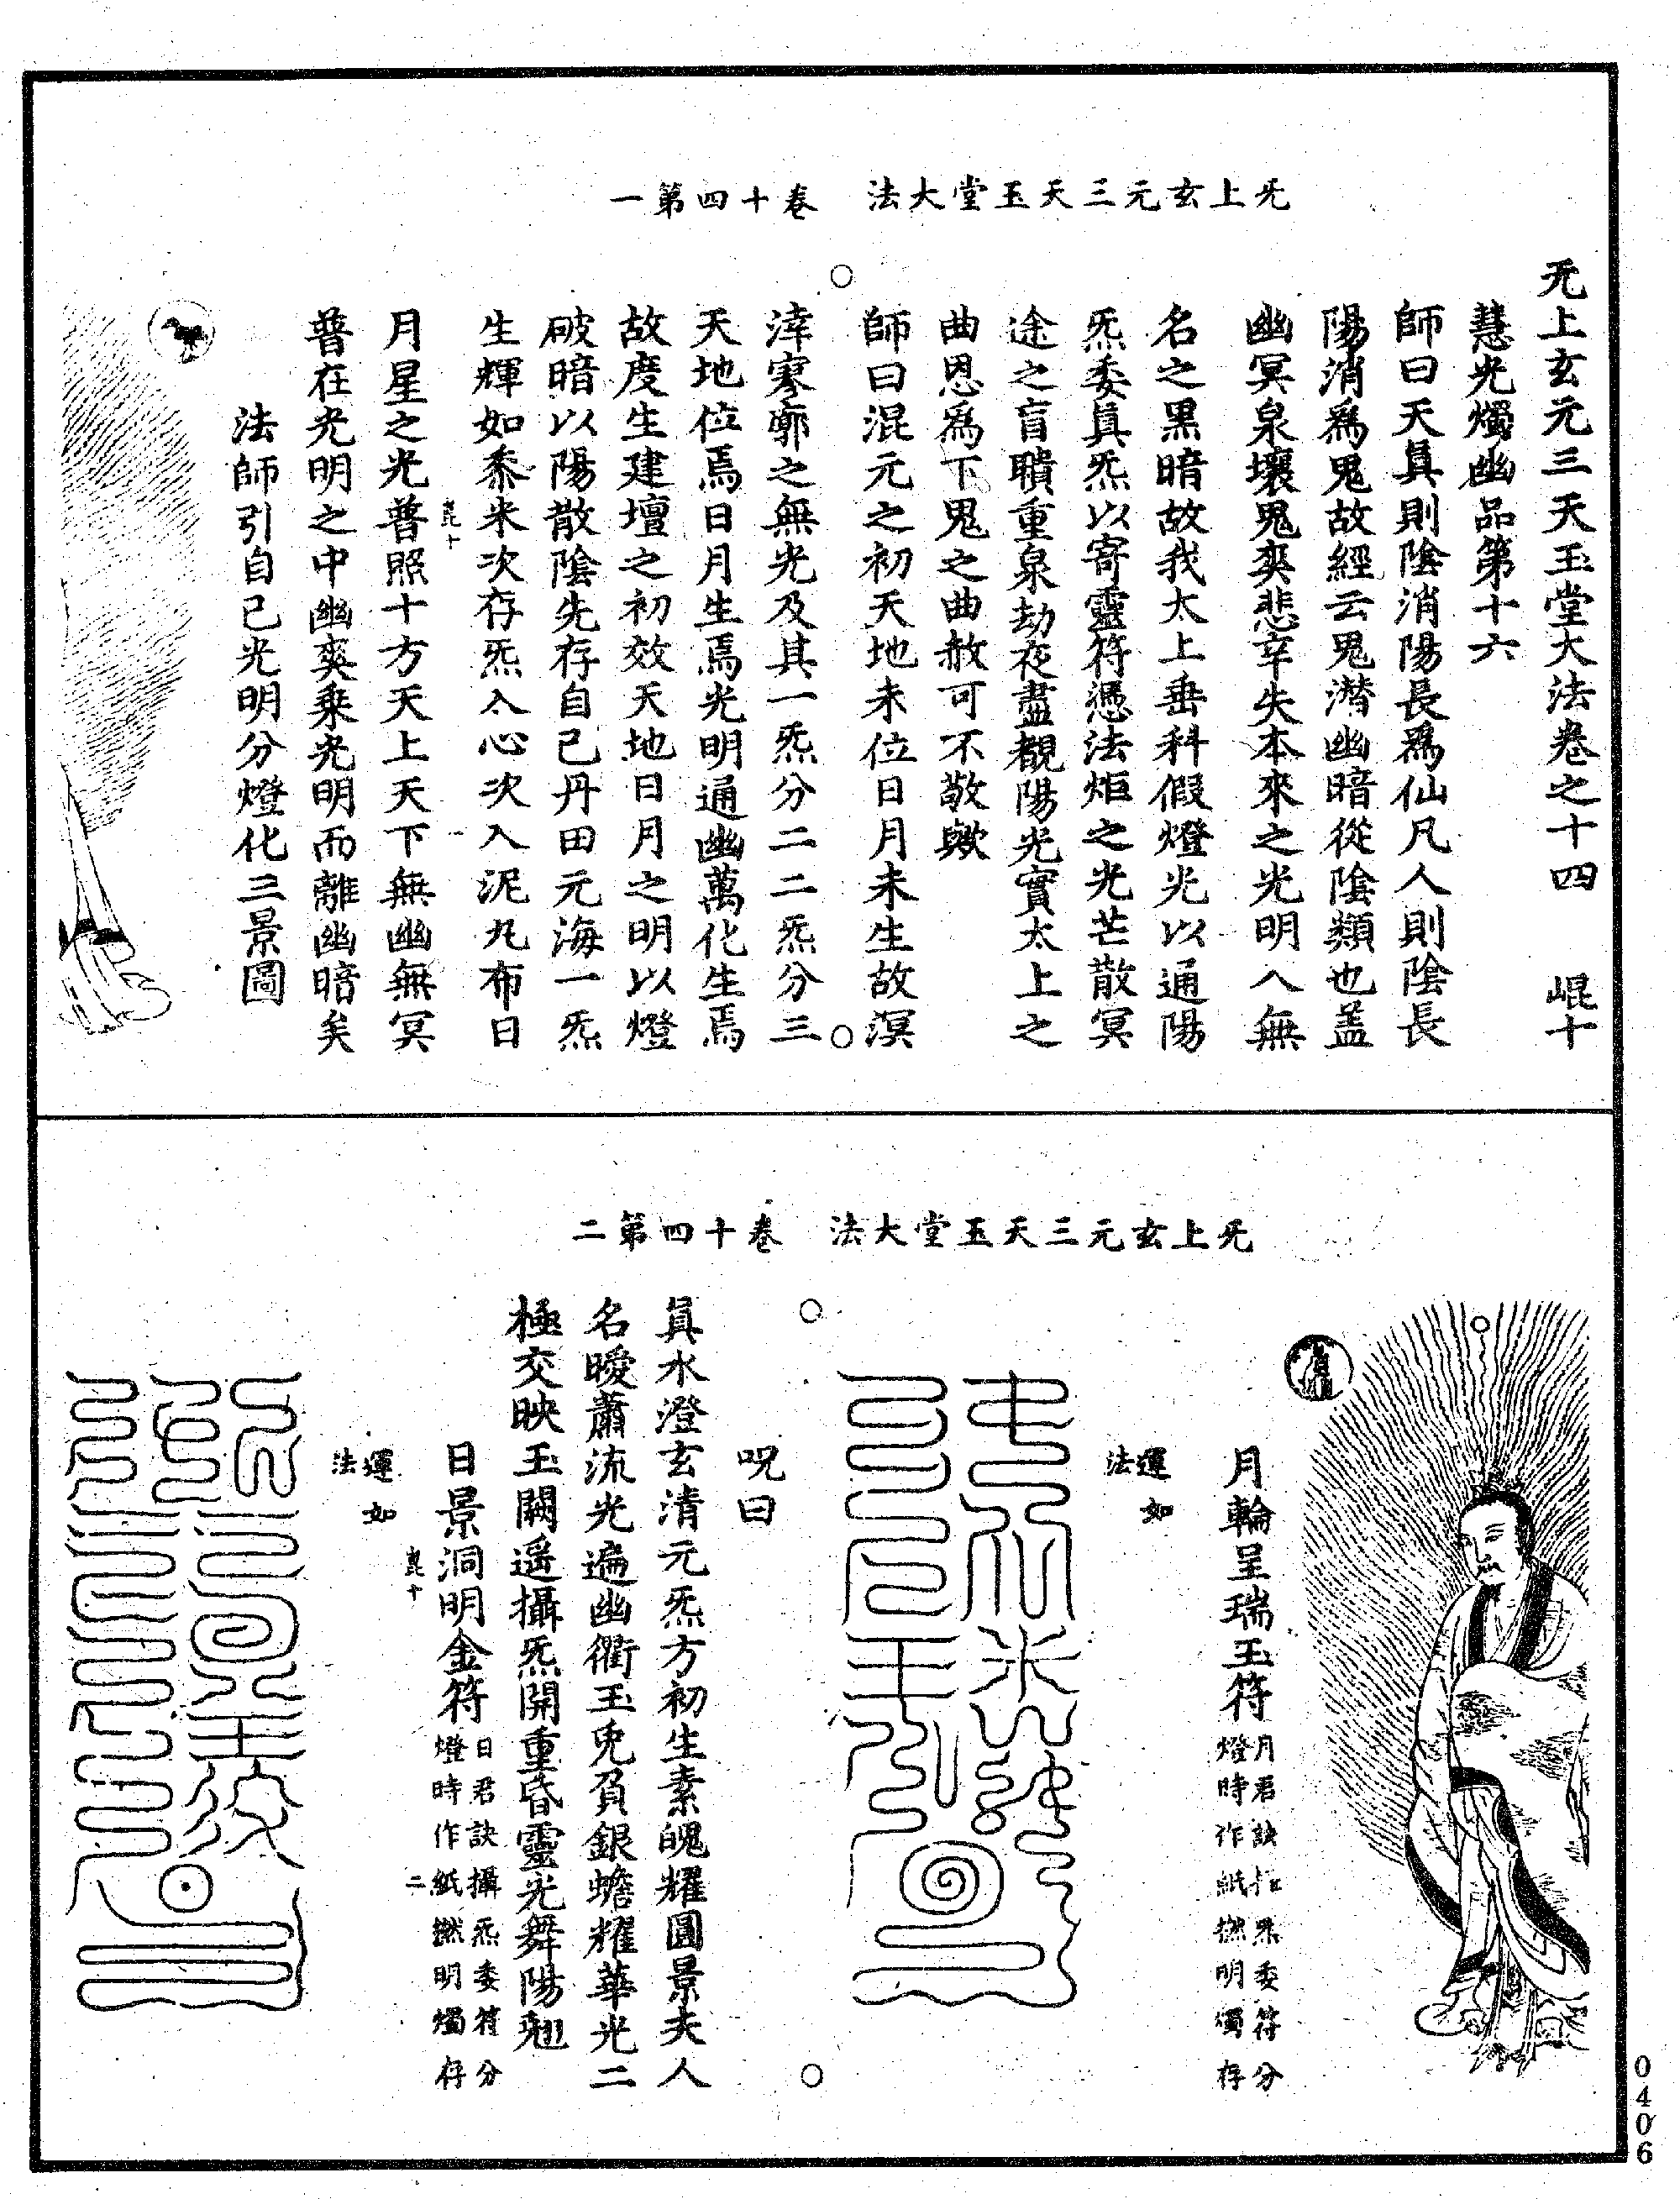 无上玄元三天玉堂大法　卷十四第一
无上玄元三天玉堂大法卷之十四　崐十
慧光燭幽品第十六
師曰天眞則陰消陽長爲仙凡人則陰長
陽消爲鬼故經云鬼潛幽暗從陰類也盖
幽冥泉壤鬼爽悲辛失本來之光明入無
名之黑暗故我太上垂科假燈光以通陽
炁委眞炁以寄靈符憑法炬之光芒散冥
途之盲瞶重泉劫夜盡覩陽光實太上之
曲恩爲下鬼之曲赦可不敬歟
師曰混元之初天地未位日月未生故溟
涬寥廓之無光及其一炁分二二炁分三
天地位焉日月生焉光明通幽萬化生焉
故度生建壇之初效天地日月之明以燈
破暗以陽散陰先存自己丹田元海一炁
生輝如黍米次存炁入心次入泥丸布日
崐十
月星之光普照十方天上天下無幽無冥
普在光明之中幽爽乗光明而離幽暗矣
法師引自己光明分燈化三景圖
无上玄元三天玉堂大法　卷十四第二
月輪呈瑞玉符
月君訣
委符分
燈時作紙撚明燭存
運如
法
呪曰
眞水澄玄清元炁方初生素魄耀圓景夫人
名曖蕭流光遍幽衢玉兎負銀蟾耀華光二
極交映玉闕遥攝炁開重昏靈光舞陽翘
日景洞明金符
日君訣攝炁委符分
燈時作紙撚明燭存
崐十
二
運如
法
0406